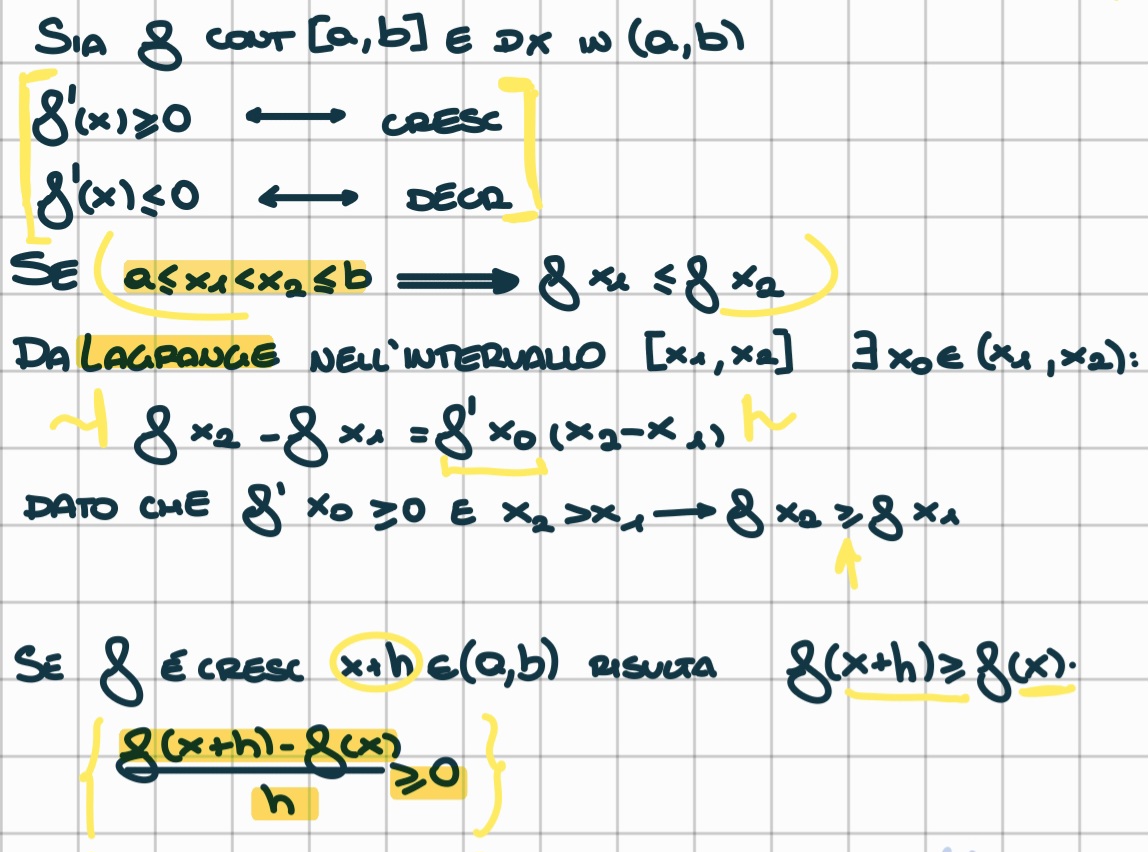 SIA f CONT [a,b] E DX IN (a,b)
f'(x)≥0 ⟷ CRESC
f'(x)≤0 ⟷ DECR
SE (a≤x₁<x₂≤b ⟹ f x₁ ≤ f x₂)
DA LAGRANGE NELL'INTERVALLO [x₁,x₂] ∃ x₀∈(x₁,x₂):
f x₂ - f x₁ = f' x₀ (x₂-x₁)
DATO CHE f' x₀ ≥0 E x₂>x₁ ⟶ f x₂ ≥ f x₁
SE f É CRESC x+h ∈(a,b) RISULTA f(x+h)≥f(x).
{ f(x+h)-f(x) / h ≥0 }